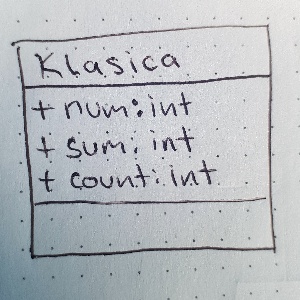 Klasica
+ num: int
+ sum: int
+ count: int